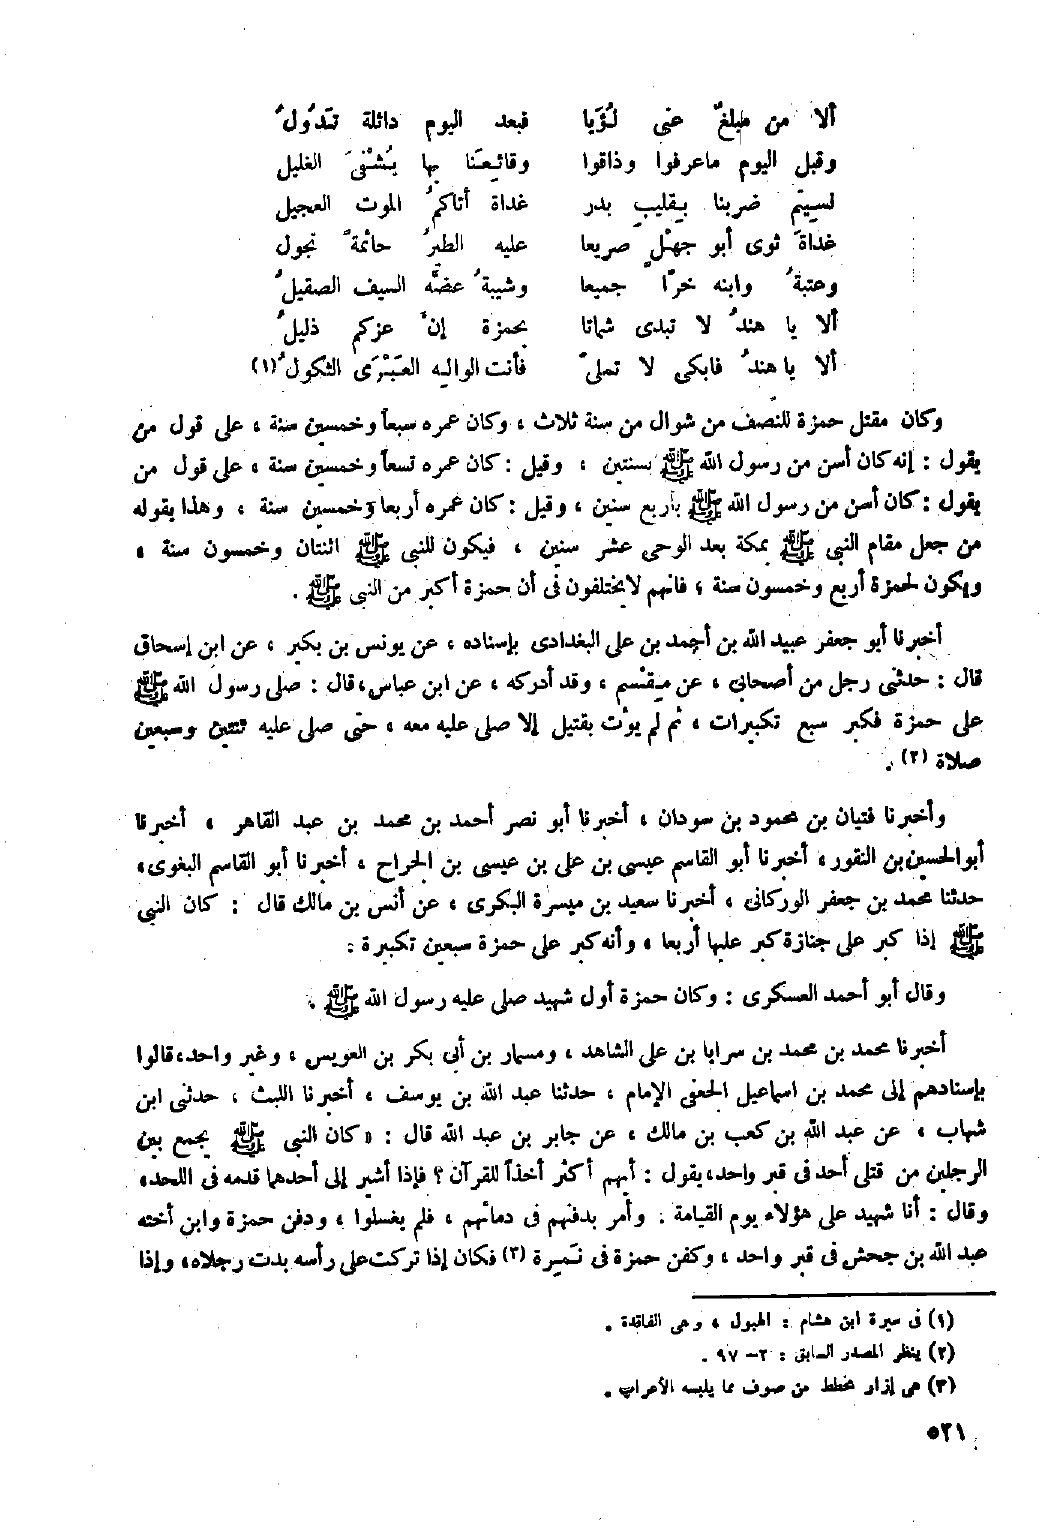 ألا من مبلغٌ عنى لُؤَيا فبعد اليوم دائلة تَدُولُ
وقبل اليوم ماعرفوا وذاقوا وقائِعَنا بها يُشْفَى الغليل
نسِيتم ضربنا بِقليبِ بدر غداة أتاكمُ الموت العجيل
غداةَ ثوى أبو جهْلٍ صريعا عليه الطيرُ حائمةً تجول
وعتبةُ وابنه خرّا جميعا وشيبةُ عضّه السيف الصقيلُ
ألا يا هندُ لا تبدى شماتا بحمزة إنّ عزكم ذليلُ
ألا يا هندُ فابكى لا تملىّ فأنت الواله العَبْرَى الثكولُ (١)
وكان مقتل حمزة للنصف من شوال من سنة ثلاث ، وكان عمره سبعاً وخمسين سنة ، على قول من
يقول : إنه كان أسن من رسول الله ﷺ بسنتين ، وقيل : كان عمره تسعاً وخمسين سنة ، على قول من
يقول : كان أسن من رسول الله ﷺ بأربع سنين ، وقيل : كان عمره أربعا وخمسين سنة ، وهذا يقوله
من جعل مقام النبى ﷺ بمكة بعد الوحى عشر سنين ، فيكون للنبى ﷺ اثنتان وخمسون سنة ،
ويكون لحمزة أربع وخمسون سنة ؛ فانهم لا يختلفون فى أن حمزة أكبر من النبى ﷺ .
أخبرنا أبو جعفر عبيد الله بن أحمد بن على البغدادى بإسناده ، عن يونس بن بكير ، عن ابن إسحاق
قال : حدثنى رجل من أصحابى ، عن مِقْسم ، وقد أدركه ، عن ابن عباس، قال : صلى رسول الله ﷺ
على حمزة فكبر سبع تكبيرات ، ثم لم يؤت بقتيل إلا صلى عليه معه ، حتى صلى عليه ثنتين وسبعين
صلاة (٢) .
وأخبرنا فتيان بن محمود بن سودان ، أخبرنا أبو نصر أحمد بن محمد بن عبد القاهر ، أخبرنا
أبو الحسين بن النقور، أخبرنا أبو القاسم عيسى بن على بن عيسى بن الجراح ، أخبرنا أبو القاسم البغوى،
حدثنا محمد بن جعفر الوركانى ، أخبرنا سعيد بن ميسرة البكرى ، عن أنس بن مالك قال : كان النبى
ﷺ إذا كبر على جنازة كبر عليها أربعا ، وأنه كبر على حمزة سبعين تكبيرة :
وقال أبو أحمد العسكرى : وكان حمزة أول شهيد صلى عليه رسول الله ﷺ .
أخبرنا محمد بن محمد بن سرايا بن على الشاهد ، ومسمار بن أبى بكر بن العويس ، وغير واحد، قالوا
بإسنادهم إلى محمد بن اسماعيل الجعفى الإمام ، حدثنا عبد الله بن يوسف ، أخبرنا الليث ، حدثنى ابن
شهاب ، عن عبد الله بن كعب بن مالك ، عن جابر بن عبد الله قال : «كان النبى ﷺ يجمع بين
الرجلين من قتلى أحد فى قبر واحد، يقول : أيهم أكثر أخذاً للقرآن ؟ فإذا أشير إلى أحدهما قدمه فى اللحد،
وقال : أنا شهيد على هؤلاء يوم القيامة . وأمر بدفنهم فى دمائهم ، فلم يغسلوا ، ودفن حمزة وابن أخته
عبد الله بن جحش فى قبر واحد ، وكفن حمزة فى نَمِيرة (٣) فكان إذا تركت على رأسه بدت رجلاه، وإذا
(١) فى سيرة ابن هشام : الهبول ، وهى الفاقدة .
(٢) ينظر المصدر السابق : ٢– ٩٧ .
(٣) هى إزار مخطط من صوف مما يلبسه الأعراب .
٥٣١